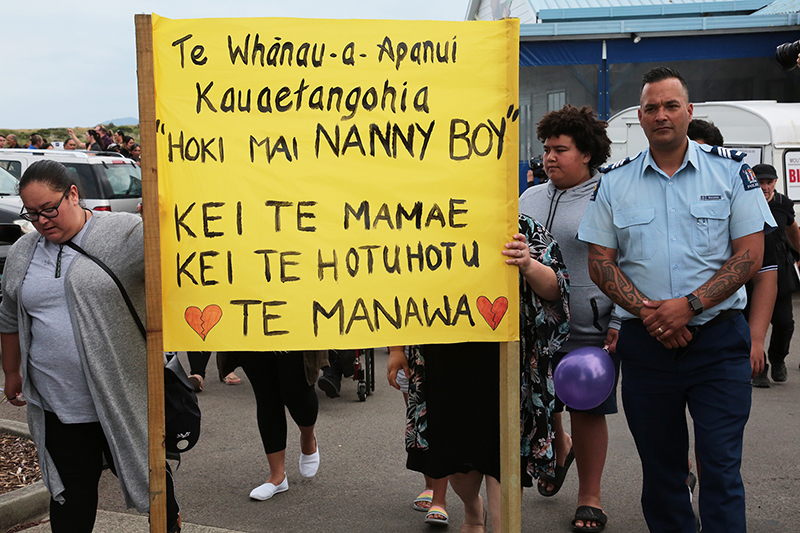 Te Whānau-a-Apanui
Kauaetangohia
"HOKI MAI NANNY BOY"
KEI TE MAMAE
KEI TE HOTUHOTU
TE MANAWA
BI